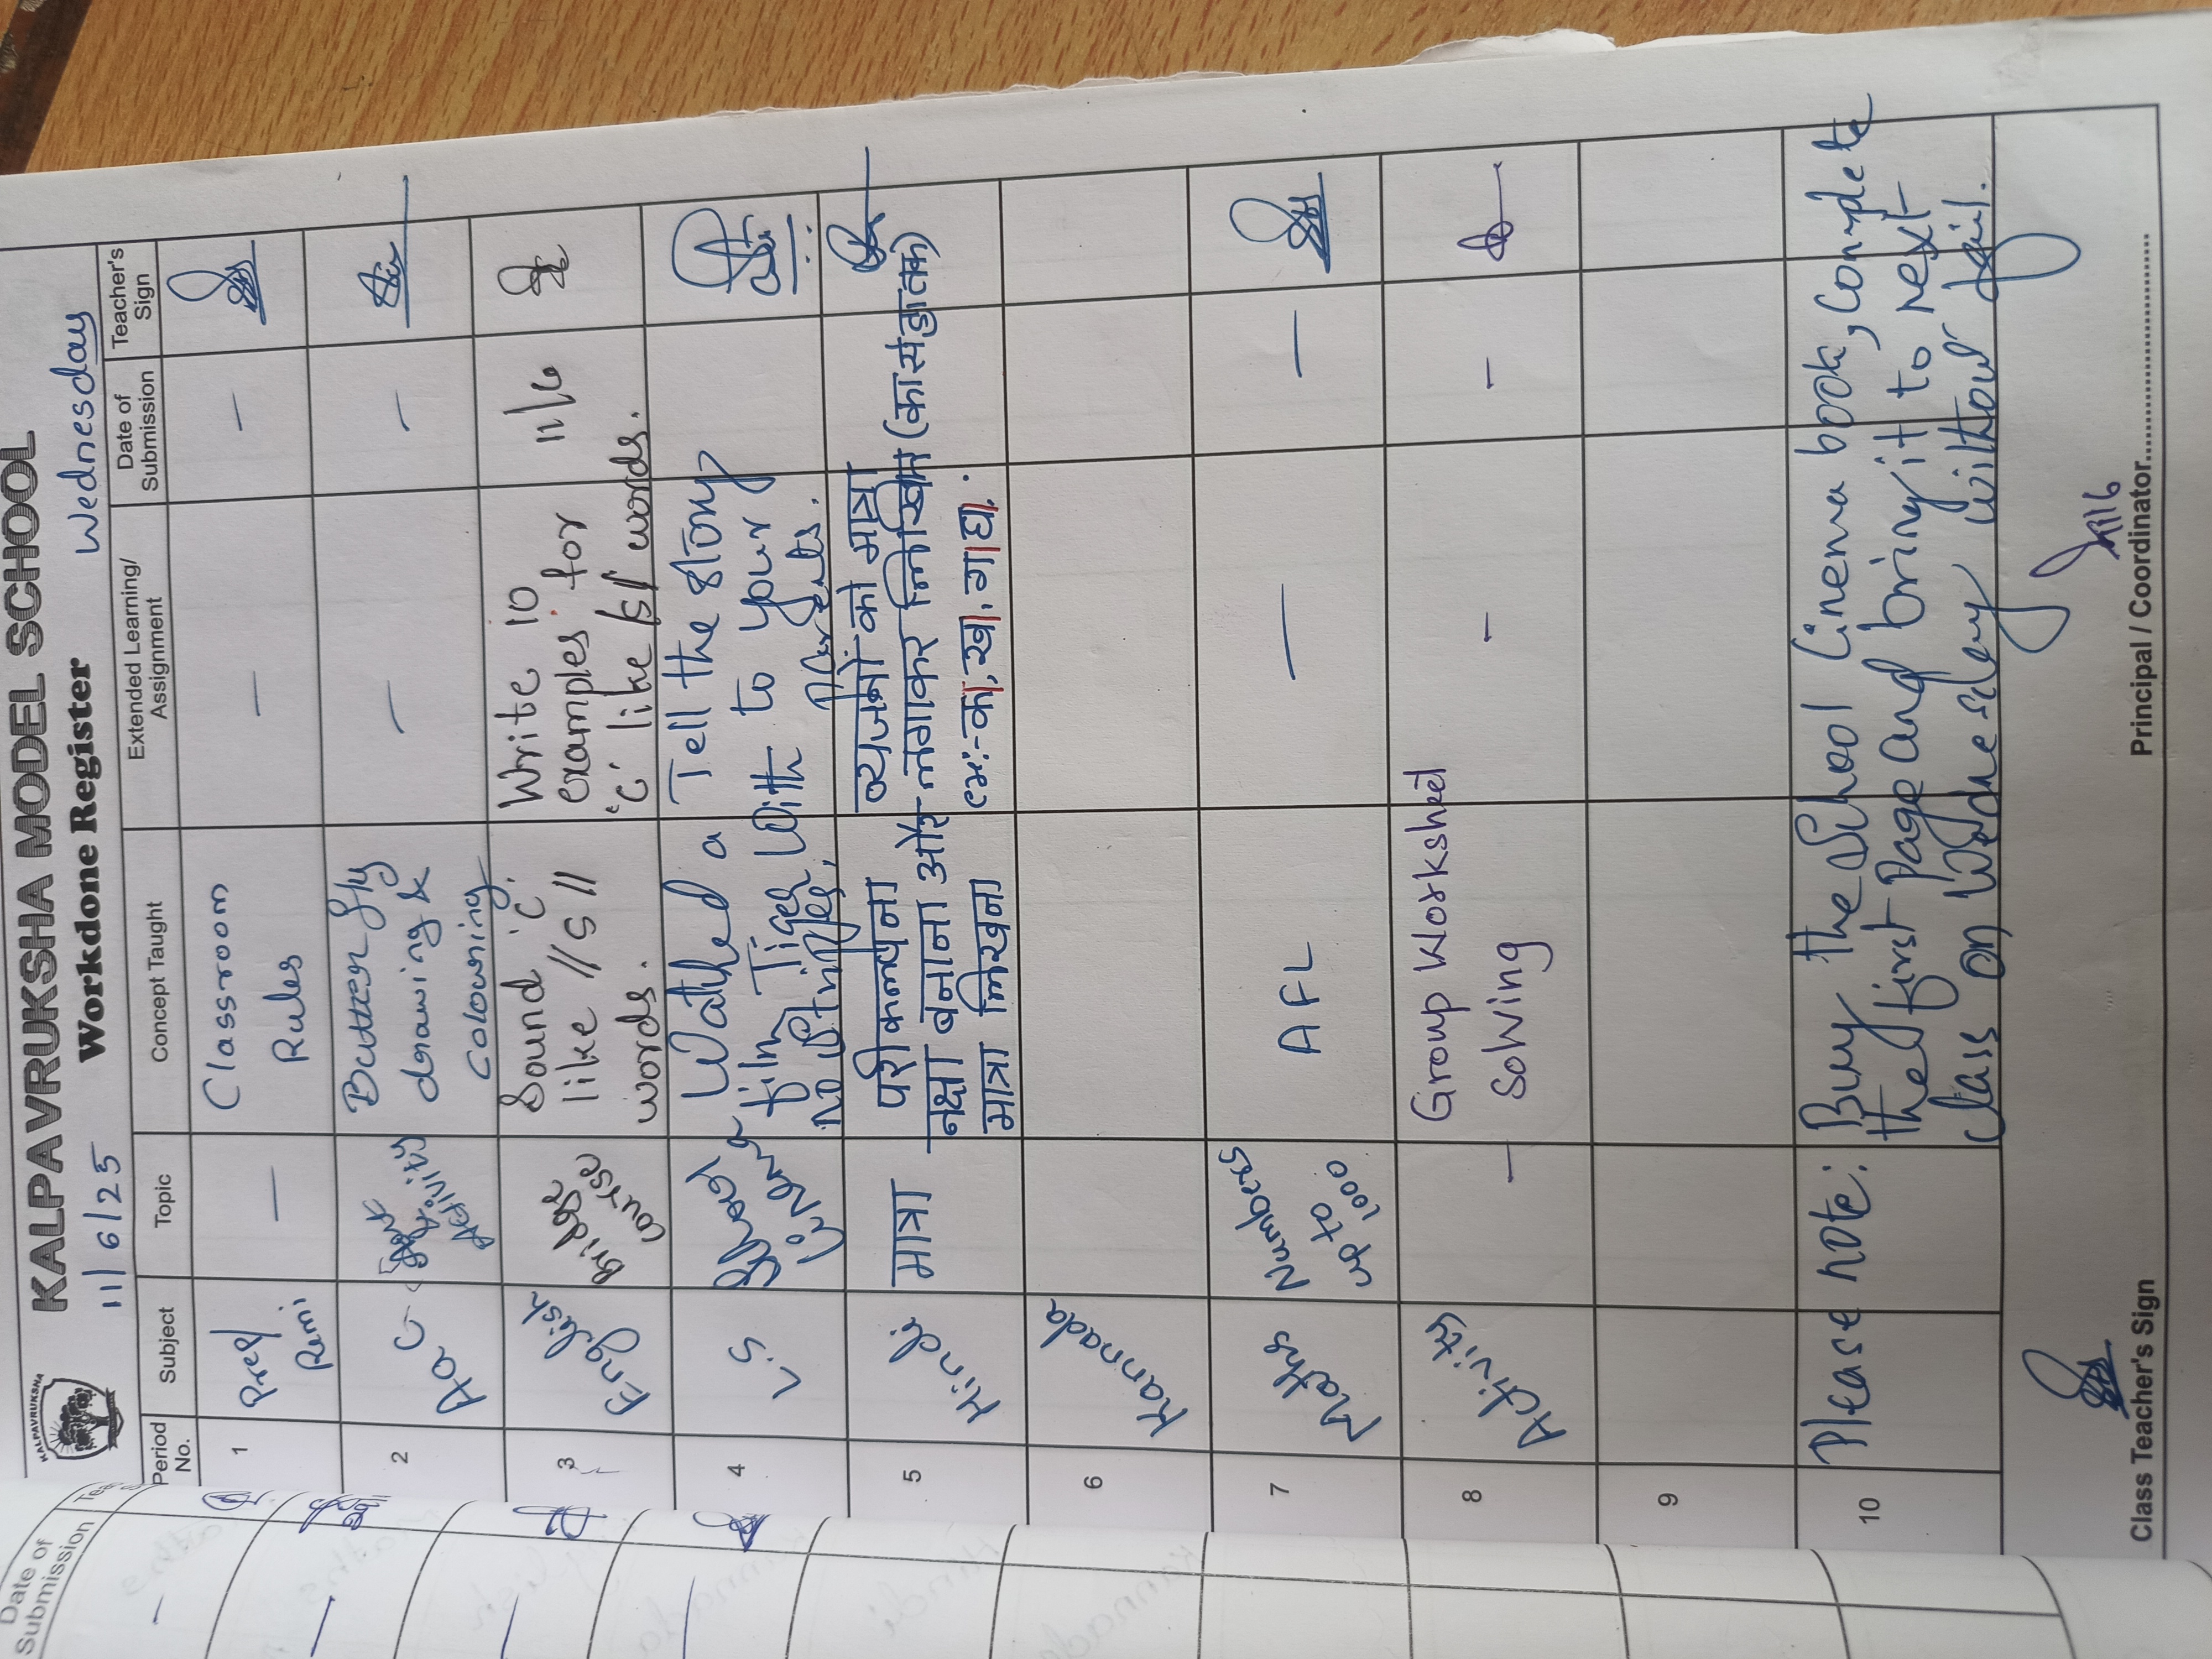 KALPAVRUKSHA
KALPAVRUKSHA MODEL SCHOOL
Workdone Register
11/6/25
Wednesday
Period No.
Subject
Topic
Concept Taught
Extended Learning/ Assignment
Date of Submission
Teacher's Sign
1
Prep/
Remi
—
Classroom
Rules
—
—
2
A a C
Activity
Butterfly
drawing &
colouring.
—
—
3
English
Bridge
course
Sound 'c'
like //s//
words.
Write 10
examples for
'c' like /s/ words.
11/6
4
L.S.
School
Cinema
Wathed a
film Tiger
no stripes.
Tell the story
with to your
parents.
5
Hindi
मात्रा
परीकल्पना
नक्षा बनाना और
मात्रा लिखना
व्यजनों को मात्रा
लगाकर लिखिए (का से ज्ञा तक)
का. खा. गा. घा.
6
Kannada
7
Maths
Numbers
up to
1,000
AFL
—
—
8
Activity
—
Group Worksheet
solving
—
—
9
10
Please note:
Buy the School Cinema book, complete
the first page and bring it to next
class on Wednesday without fail.
11/6
Class Teacher's Sign
Principal / Coordinator
Date of
Submission